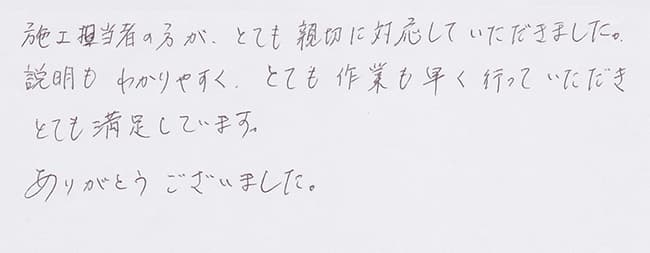 施工担当者の方が、とても親切に対応していただきました。
説明もわかりやすく、とても作業も早く行っていただき
とても満足しています。
ありがとうございました。